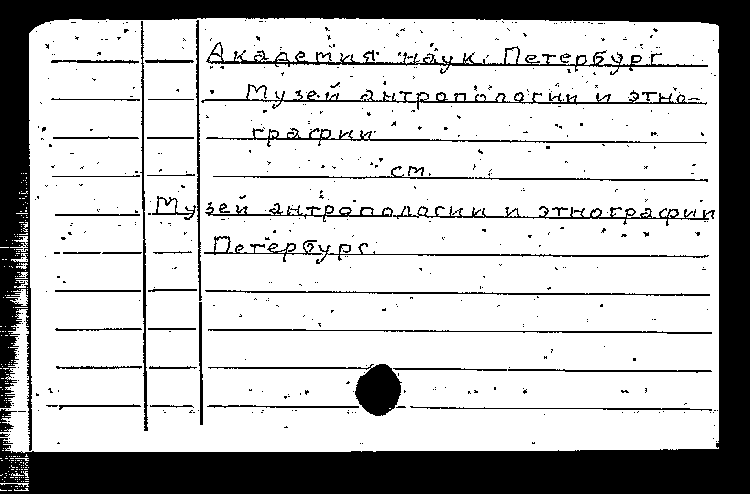 Академия наук. Петербург
Музей антропологии и этно-
графии
см.
Музей антропологии и этнографии
Петербург.